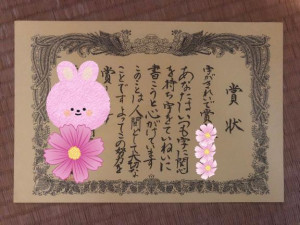 賞状
字がきれいで賞
あなたはいつも字に関心
を持ち字をていねいに
書こうと心がけています
このことは人間として大切な
ことですよってこの努力を
賞